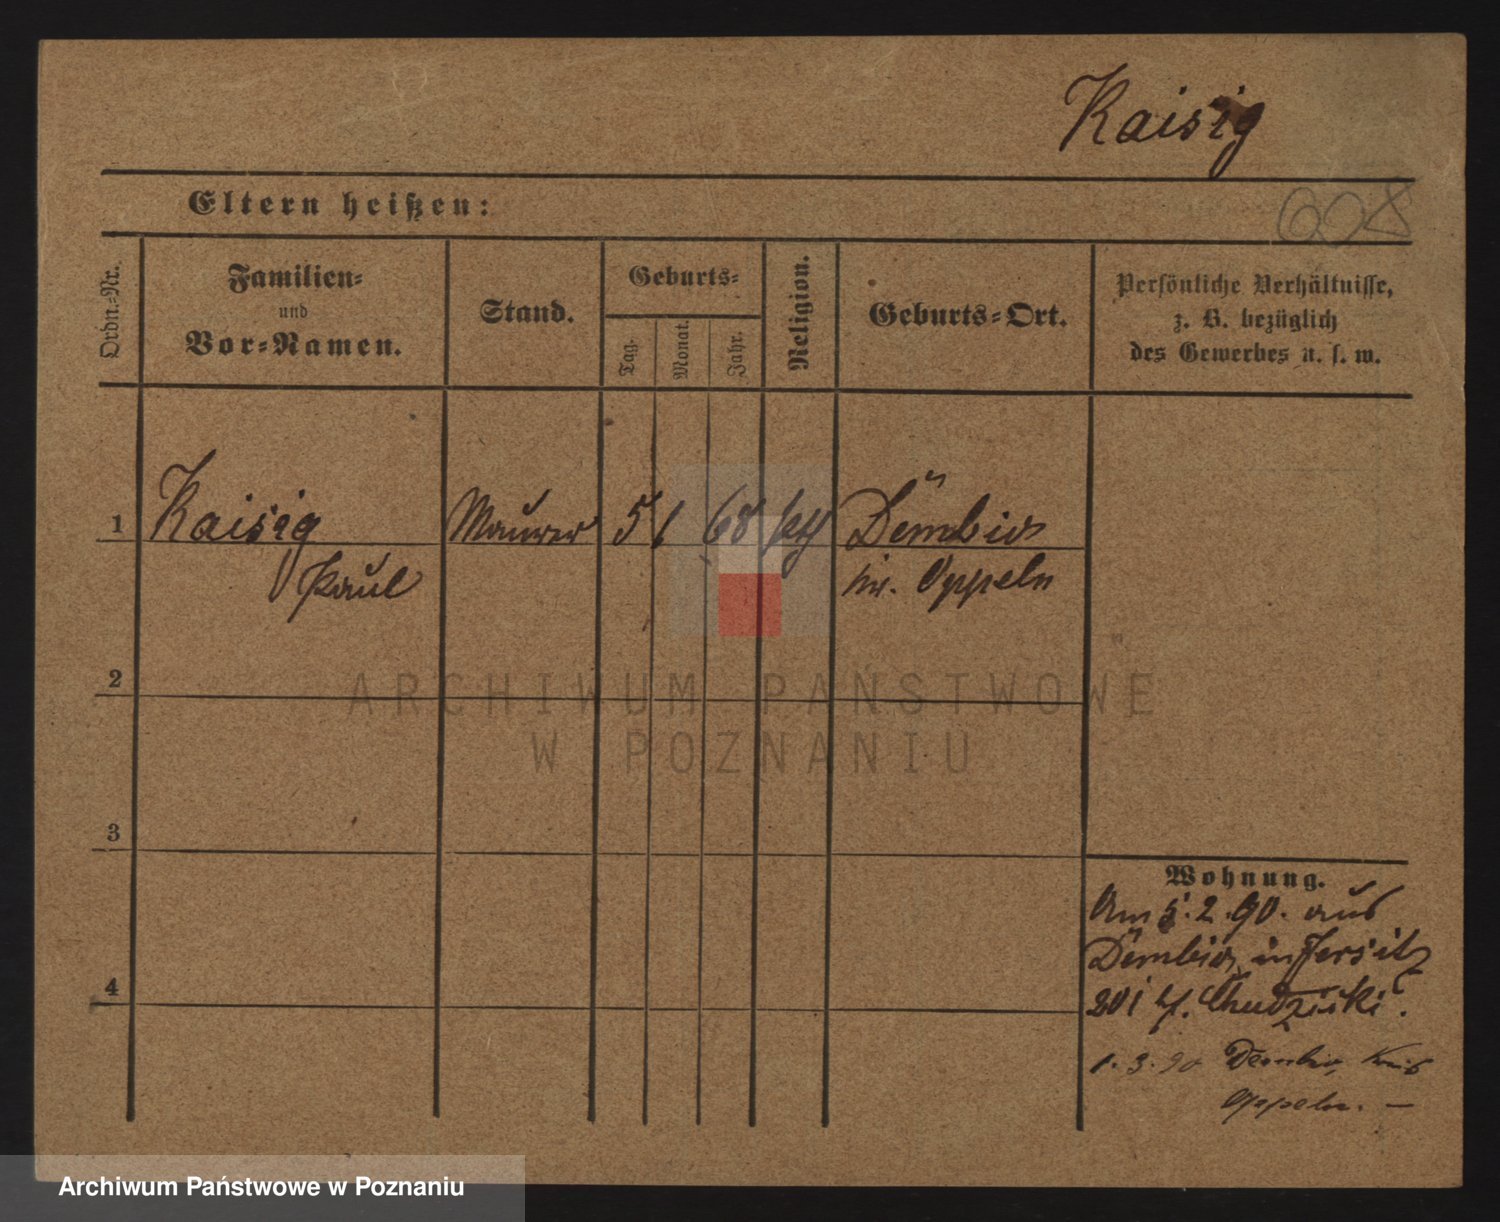 Kaisig
Eltern heißen:
608
Ordn.-Nr.
Familien-
und
Vor-Namen.
Stand.
Geburts-
Tag.
Monat.
Jahr.
Religion.
Geburts-Ort.
Persönliche Verhältnisse,
z. B. bezüglich
des Gewerbes u. s. w.
1
Kaisig
Paul
Maurer
5
1
68
Dembio
Kr. Oppeln
2
ARCHIWUM PAŃSTWOWE
W POZNANIU
3
Wohnung.
Am 5.2.90. aus
Dembio, in Jersitz
201 Chudziski.
4
1.3.90 Dembio, Kreis
Oppeln. —
Archiwum Państwowe w Poznaniu